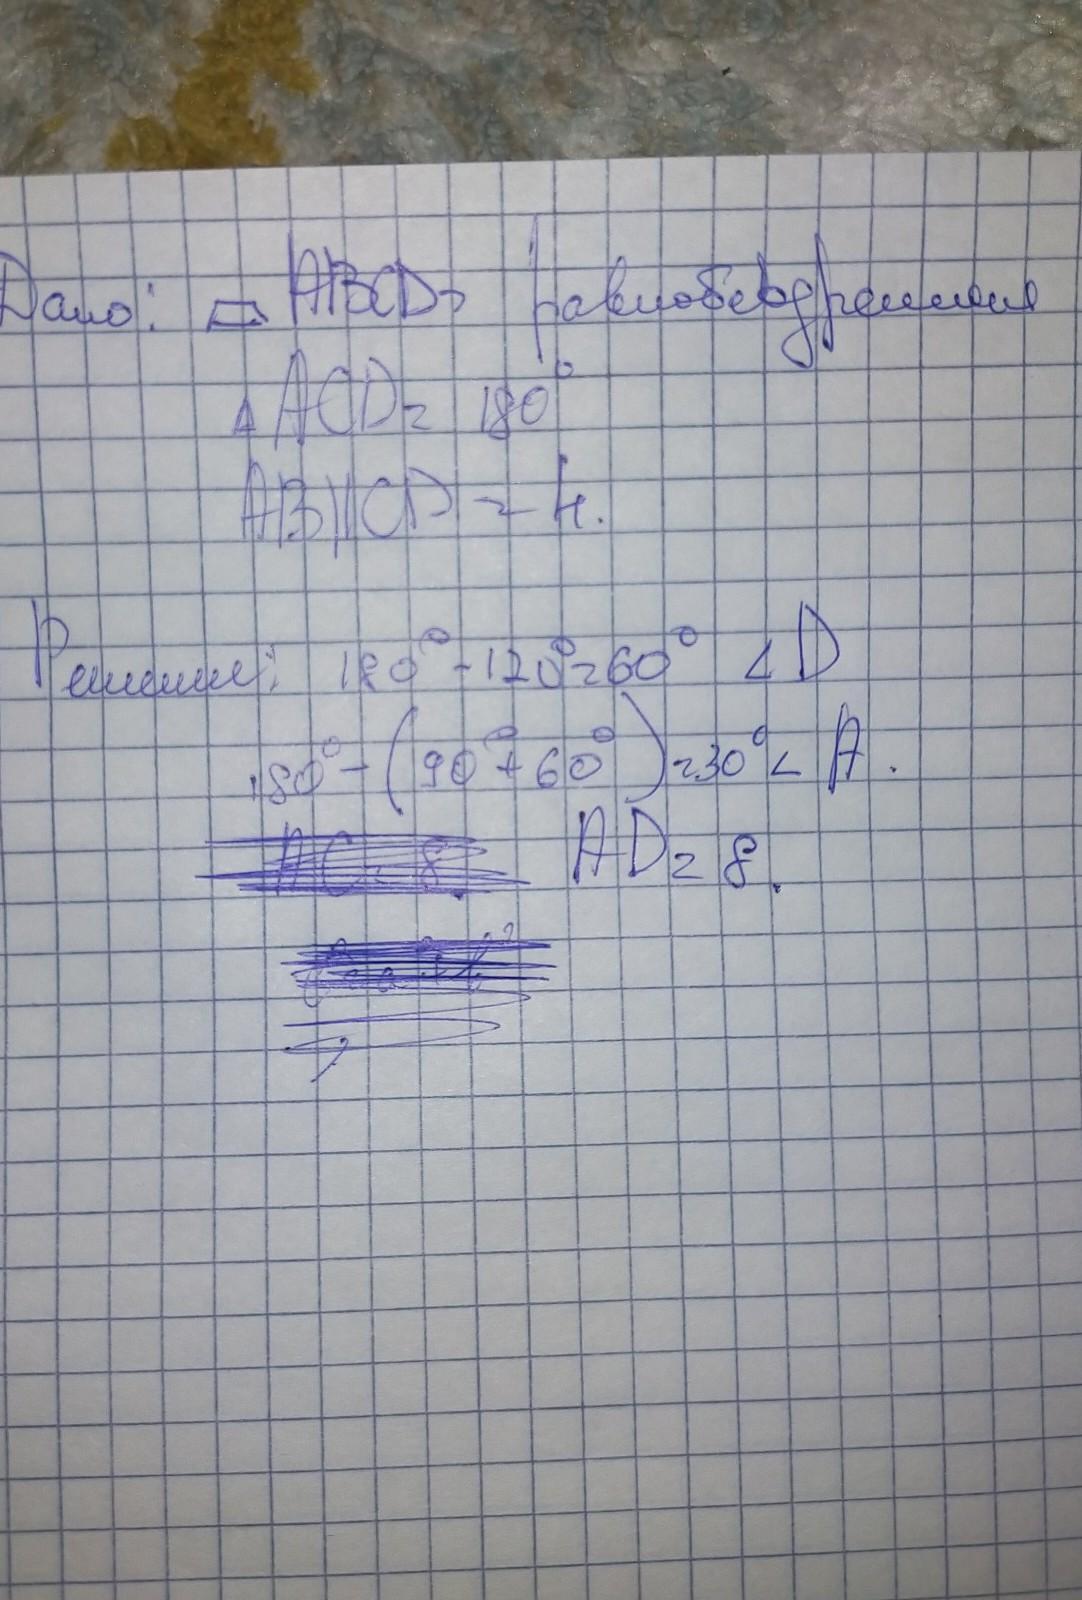 Дано: ▱ ABCD = равнобедренная
△ ACD = 180°
AB || CD = 4.
Решение: 180° - 120° = 60° ∠D
180° - (90° + 60°) = 30° ∠ A.
AD = 8.